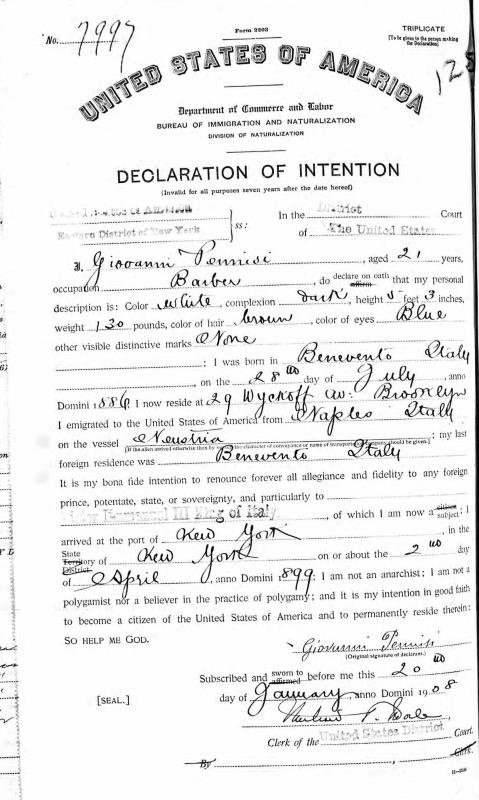 Form 2203
TRIPLICATE
[To be given to the person making the Declaration]
No. 7997
125
UNITED STATES OF AMERICA
Department of Commerce and Labor
BUREAU OF IMMIGRATION AND NATURALIZATION
DIVISION OF NATURALIZATION
DECLARATION OF INTENTION
(Invalid for all purposes seven years after the date hereof)
United States of America
Eastern District of New York
ss:
In the District Court
of The United States
I, Giovanni Pennisi, aged 21 years,
occupation Barber, do declare on oath affirm that my personal
description is: Color White, complexion dark, height 5 feet 3 inches,
weight 130 pounds, color of hair brown, color of eyes Blue
other visible distinctive marks None
; I was born in Benevento Italy
, on the 28 day of July, anno
Domini 1886; I now reside at 29 Wyckoff av. Brooklyn
I emigrated to the United States of America from Naples Italy
on the vessel Neustria; my last
[If the alien arrived otherwise than by vessel, the character of conveyance or name of transportation company should be given.]
foreign residence was Benevento Italy
It is my bona fide intention to renounce forever all allegiance and fidelity to any foreign
prince, potentate, state, or sovereignty, and particularly to
Emmanuel III King of Italy, of which I am now a citizen subject; I
arrived at the port of New York, in the
State Territory District of New York on or about the 2 day
of April, anno Domini 1899; I am not an anarchist; I am not a
polygamist nor a believer in the practice of polygamy; and it is my intention in good faith
to become a citizen of the United States of America and to permanently reside therein:
SO HELP ME GOD.
Giovanni Pennisi
(Original signature of declarant.)
Subscribed and sworn to affirmed before me this 20
[SEAL.]
day of January, anno Domini 1908
Clerk of the United States District Court.
By , Clerk.